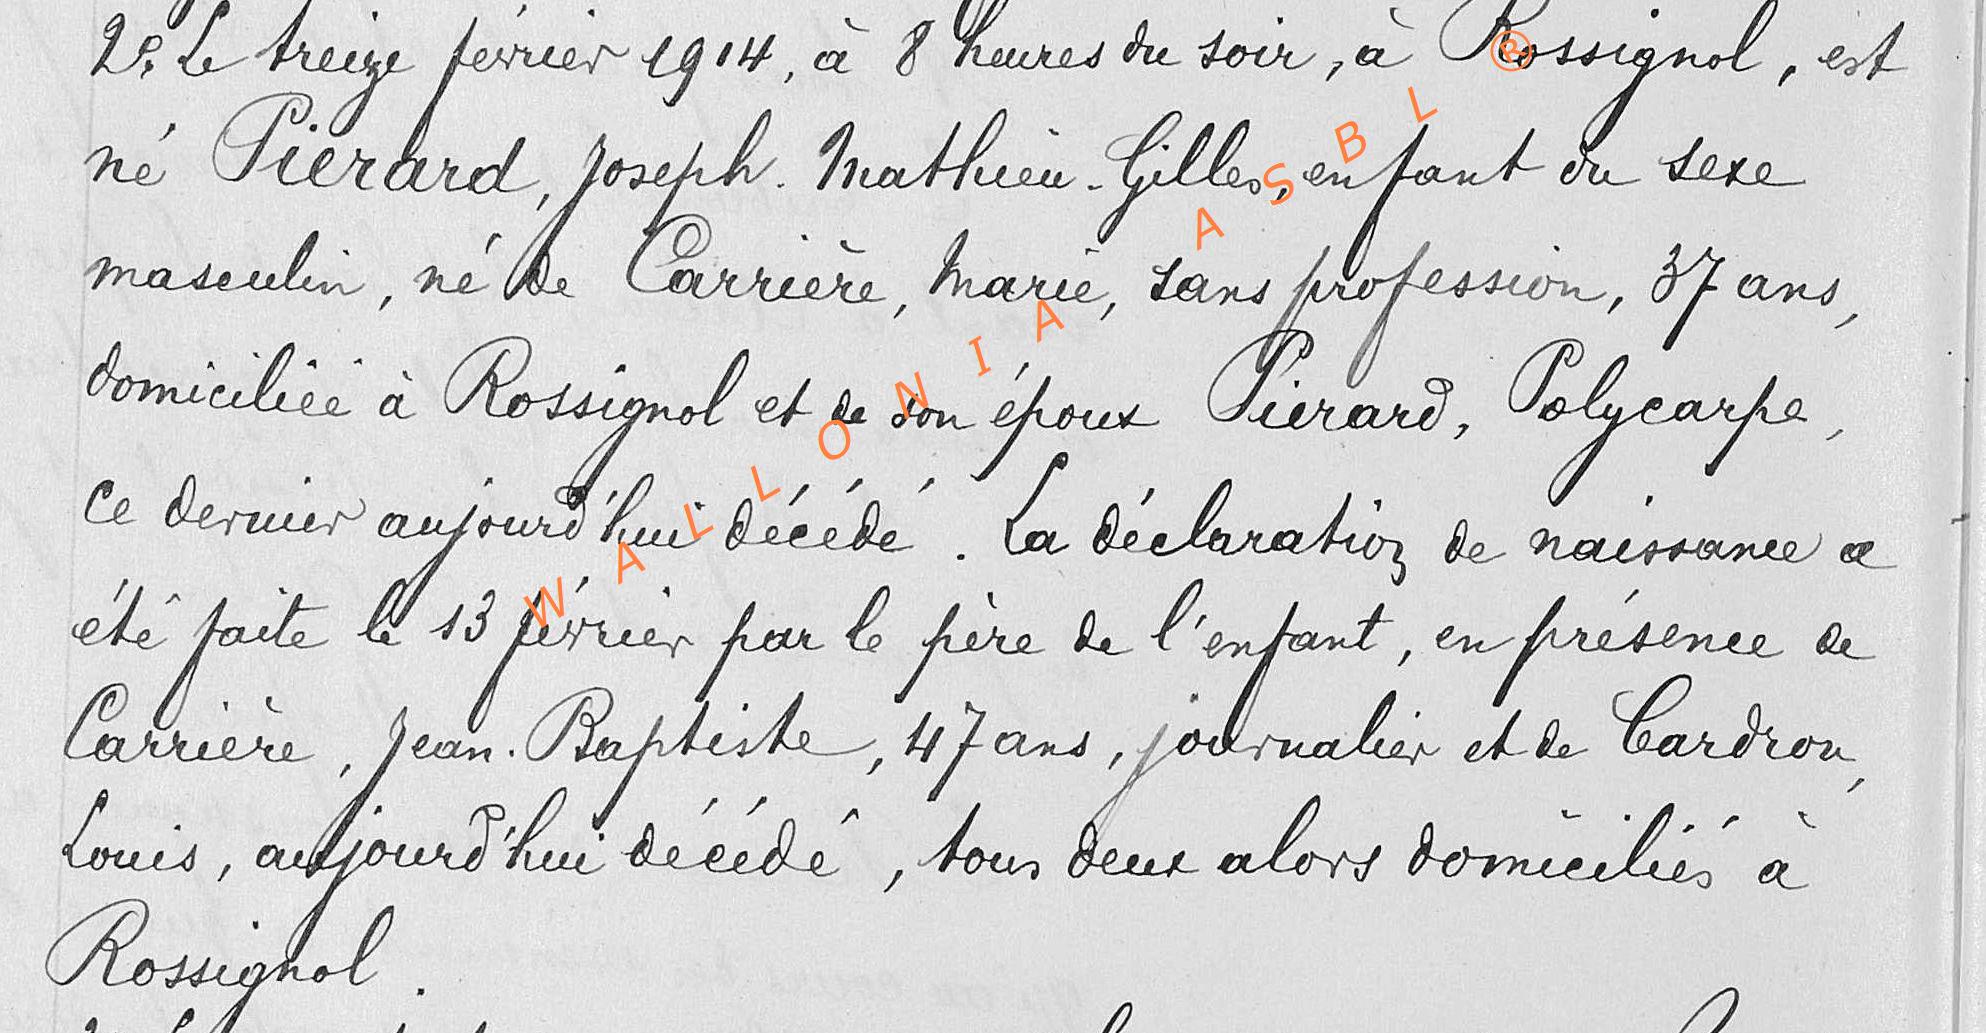 2° Le treize février 1914, à 8 heures du soir, à Rossignol, est
né Pierard, Joseph-Mathieu-Gilles, enfant du sexe
masculin, né de Carrière, Marie, sans profession, 37 ans,
domiciliée à Rossignol et de son époux Pierard, Polycarpe,
ce dernier aujourd'hui décédé. La déclaration de naissance a
été faite le 13 février par le père de l'enfant, en présence de
Carrière, Jean-Baptiste, 47 ans, journalier et de Cardron,
Louis, aujourd'hui décédé, tous deux alors domiciliés à
Rossignol.
WALLONIA ASBL ®